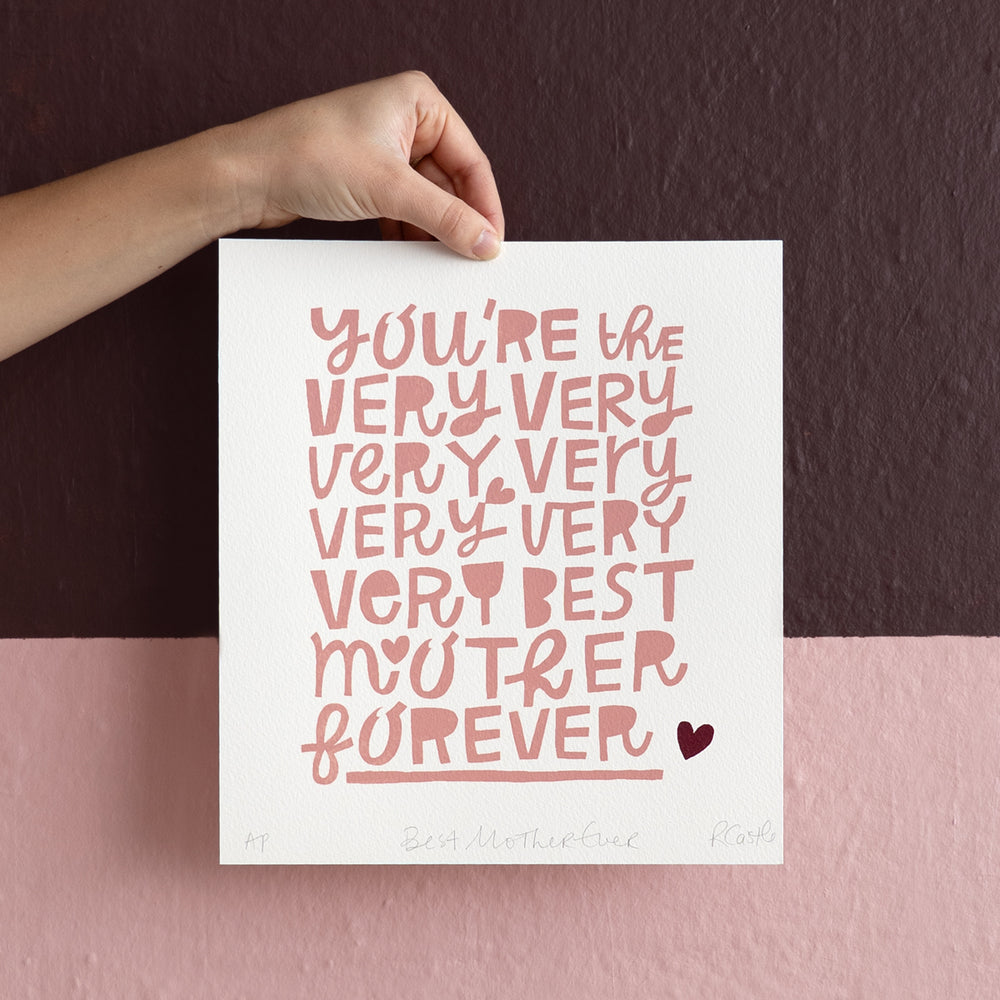 YOU'RE the
VERY VERY
VERY VERY
VERY VERY
VERY BEST
MOTHER
FOREVER
AP Best Mother Ever RCastle